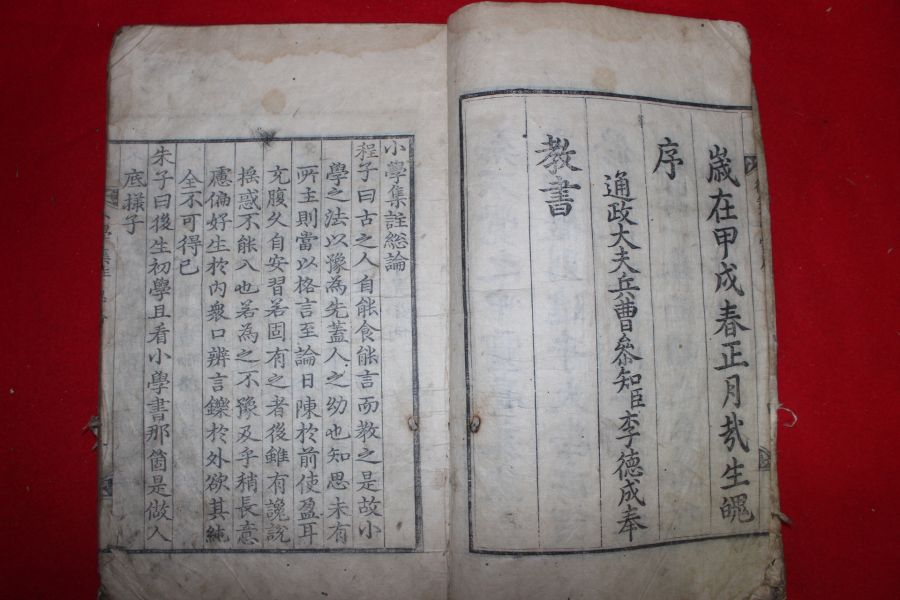 歲在甲戌春正月哉生魄
序
通政大夫兵曹參知臣李德成奉
教書
小學集註総論
程子曰古之人自能食能言而教之是故小
學之法以豫為先蓋人之幼也知思未有
所主則當以格言至論日陳於前使盈耳
充腹久自安習若固有之者後雖有讒說
搖惑不能入也若為之不豫及乎稍長意
慮偏好生於內衆口辨言鑠於外欲其純
全不可得已
朱子曰後生初學且看小學書那箇是做人
底樣子